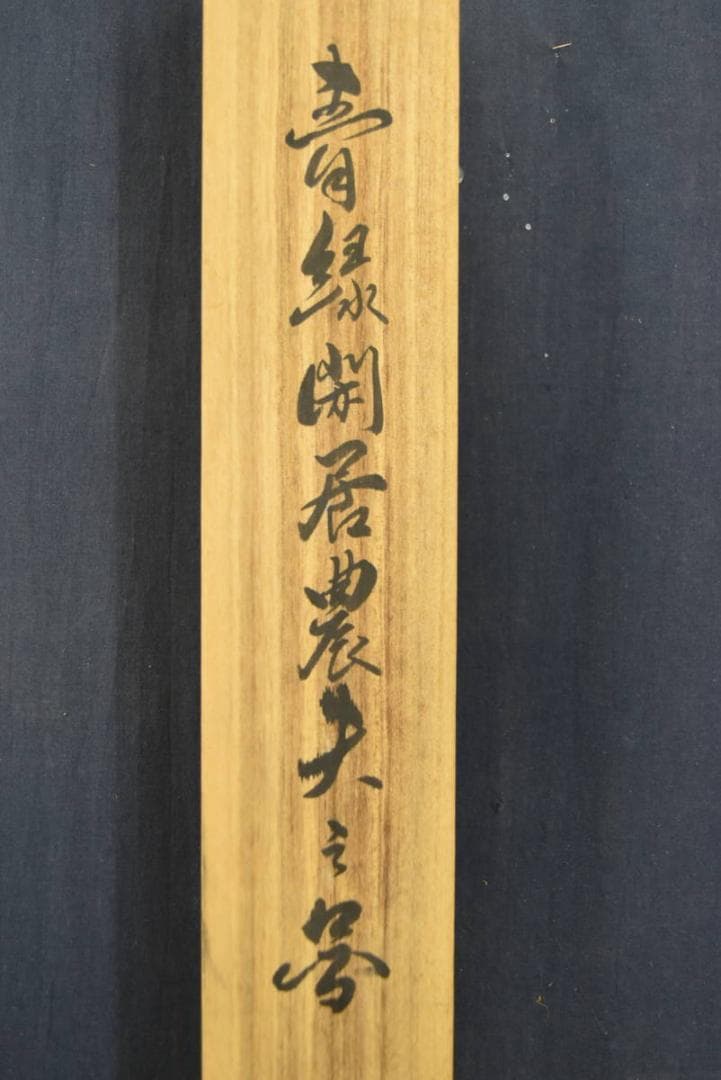 青緑閑居農夫之圖